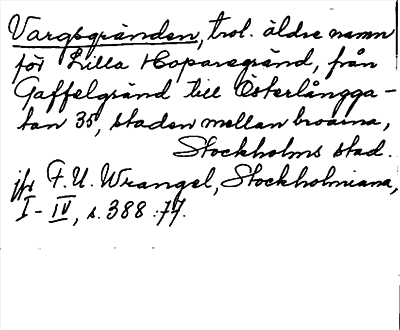 Vargsgränden, trol. äldre namn
för Lilla Hoparegränd, från
Gaffelgränd till Österlångga-
tan 35, staden mellan broarna,
Stockholms stad.
jfr F.U. Wrangel, Stockholmiana,
I-IV, s. 388 : 77.